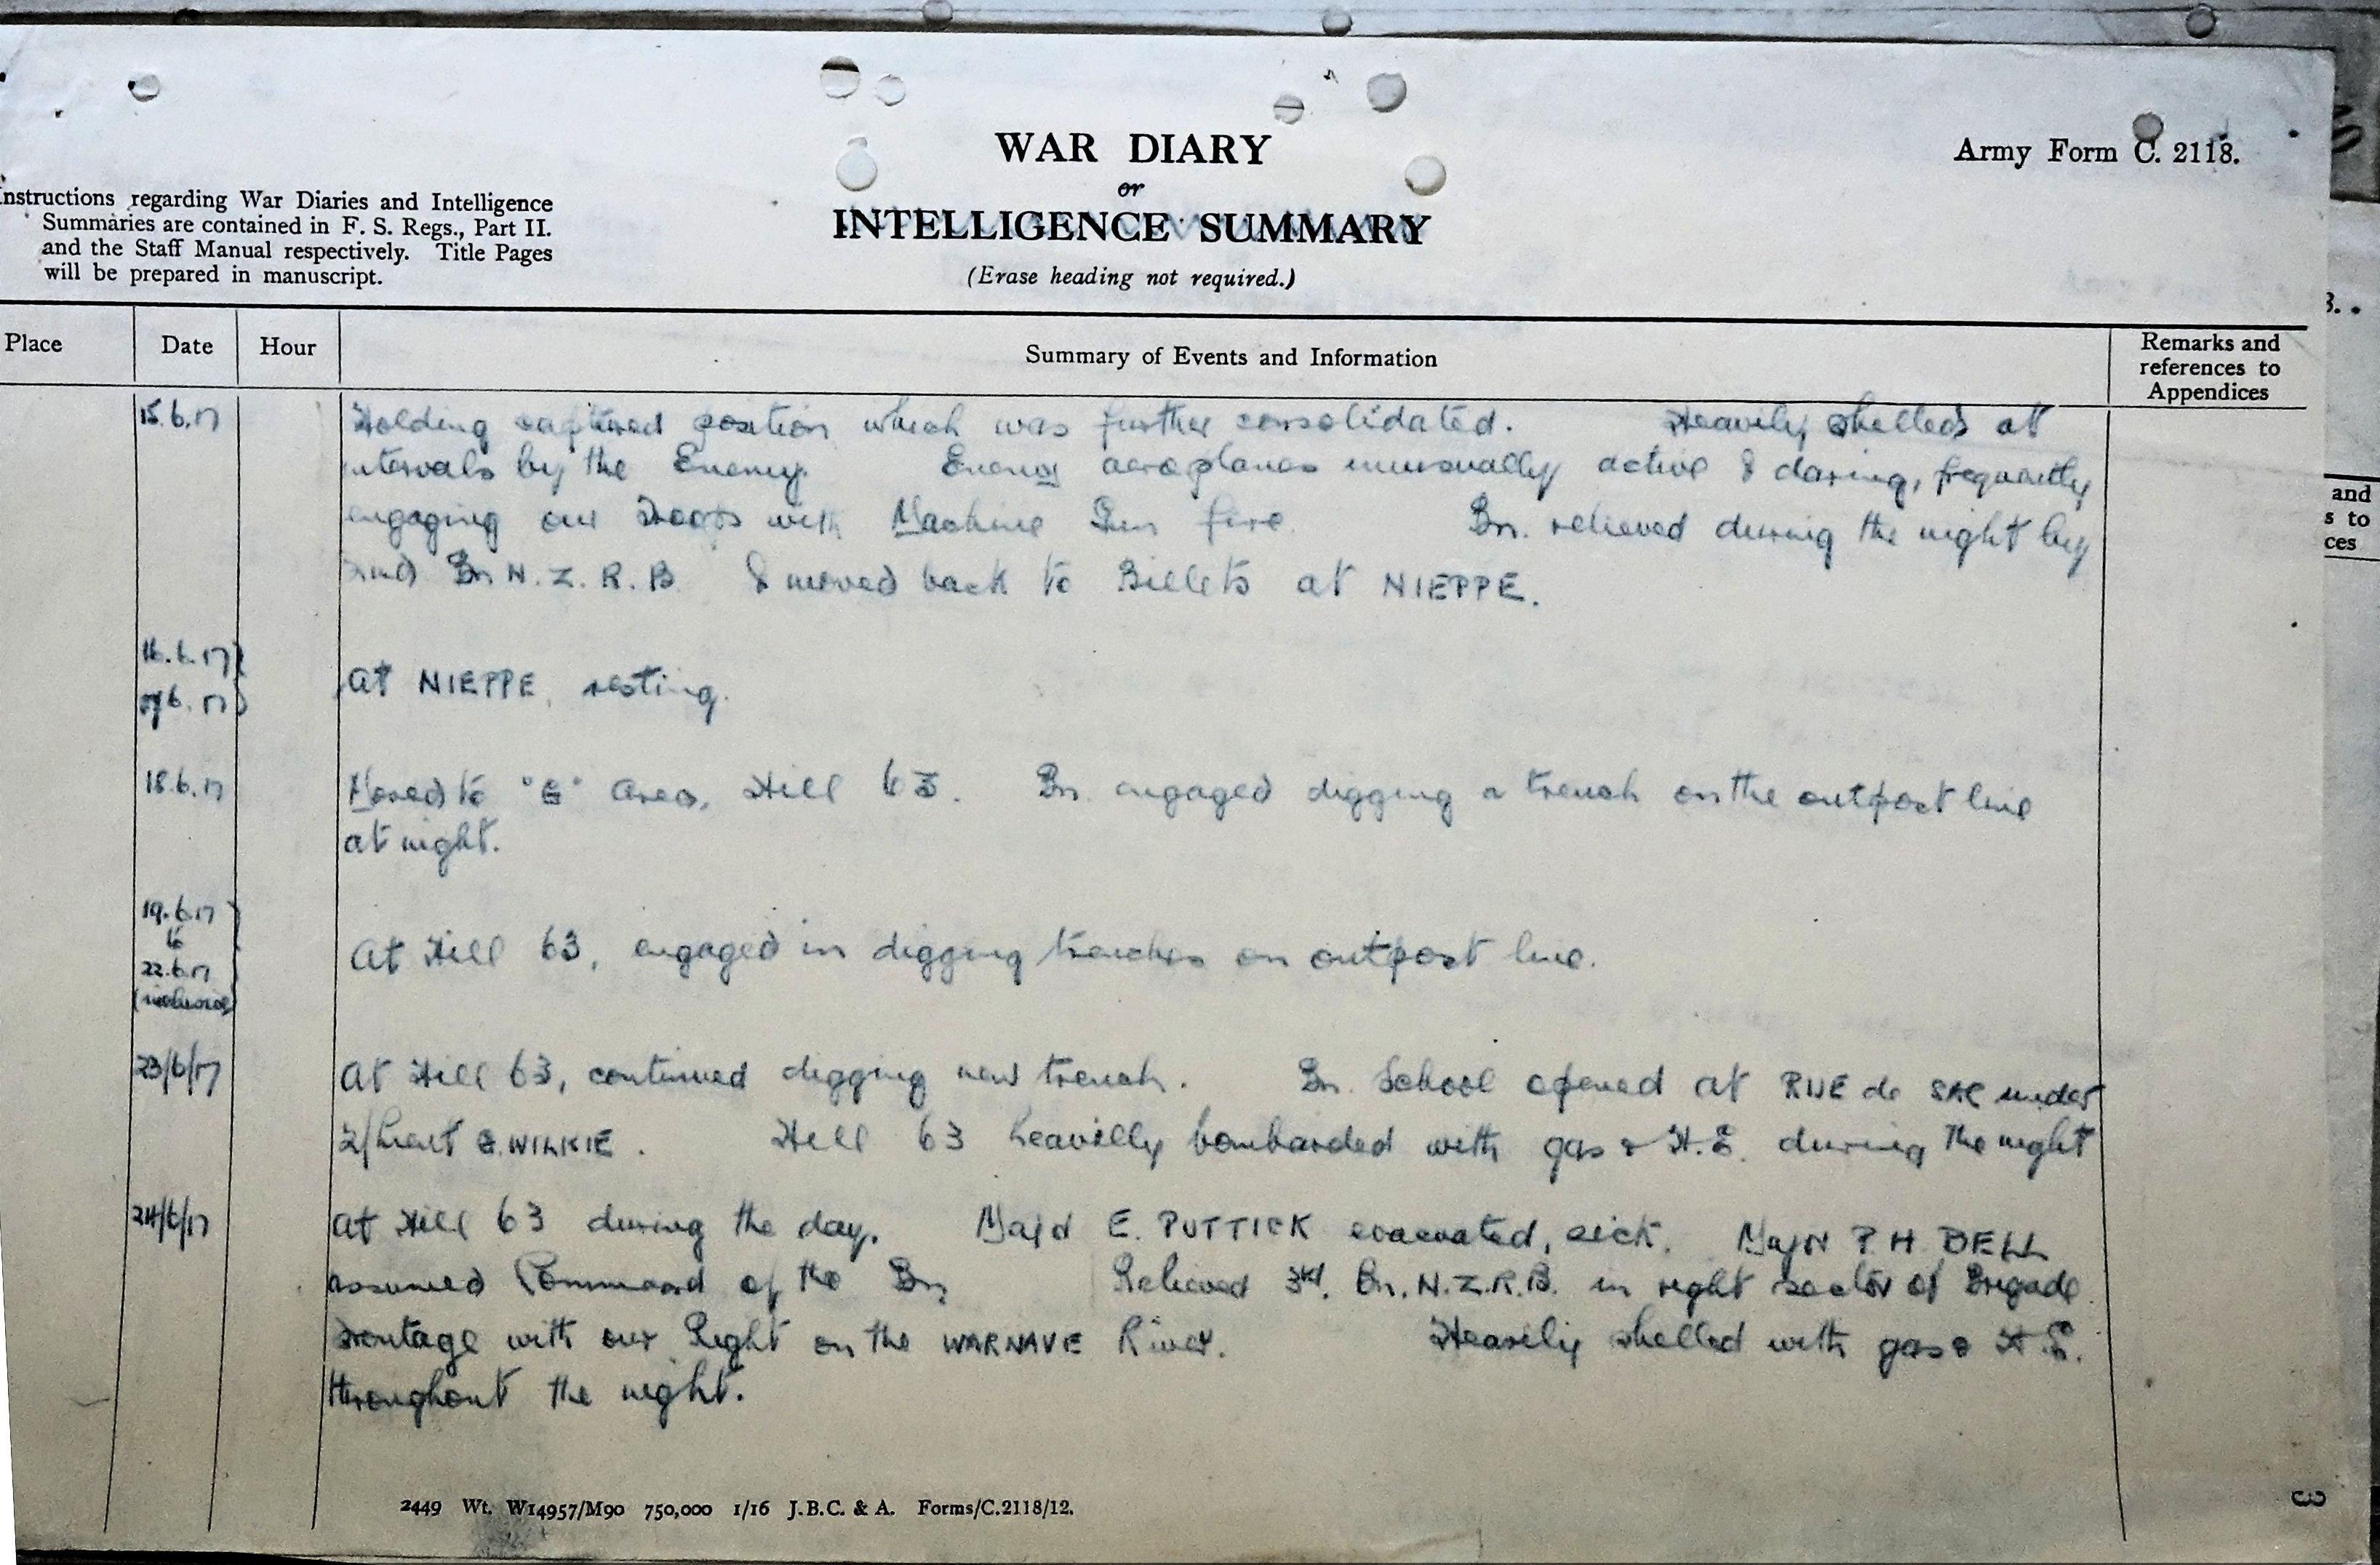 WAR DIARY
or
INTELLIGENCE SUMMARY
(Erase heading not required.)
Army Form C. 2118.
nstructions regarding War Diaries and Intelligence
Summaries are contained in F. S. Regs., Part II.
and the Staff Manual respectively. Title Pages
will be prepared in manuscript.
Place Date Hour Summary of Events and Information Remarks and
references to
Appendices
15.6.17 Holding captured position which was further consolidated. Heavily shelled at
intervals by the Enemy. Enemy aeroplanes unusually active & daring, frequently
engaging our Troops with Machine Gun fire. Bn. relieved during the night by
2nd Bn N.Z.R.B. & moved back to Billets at NIEPPE.
16.6.17
17.6.17 At NIEPPE, resting.
18.6.17 Moved to "G" area, Hill 63. Bn. engaged digging a trench on the outpost line
at night.
19.6.17
to
22.6.17
(inclusive) At Hill 63, engaged in digging trenches on outpost line.
23/6/17 At Hill 63, continued digging new trench. Bn. School opened at RUE de SAC under
2/Lieut G. WILKIE. Hill 63 heavilly bombarded with gas & H.E. during the night
24/6/17 At Hill 63 during the day. Major E. PUTTICK evacuated, sick. Major P. H. BELL
assumed Command of the Bn. Relieved 3rd. Bn. N.Z.R.B. in right sector of Brigade
frontage with our Right on the WARNAVE River. Heavily shelled with gas & H.E.
throughout the night.
2449 Wt. W14957/M90 750,000 1/16 J.B.C. & A. Forms/C.2118/12.
3
and
s to
ces